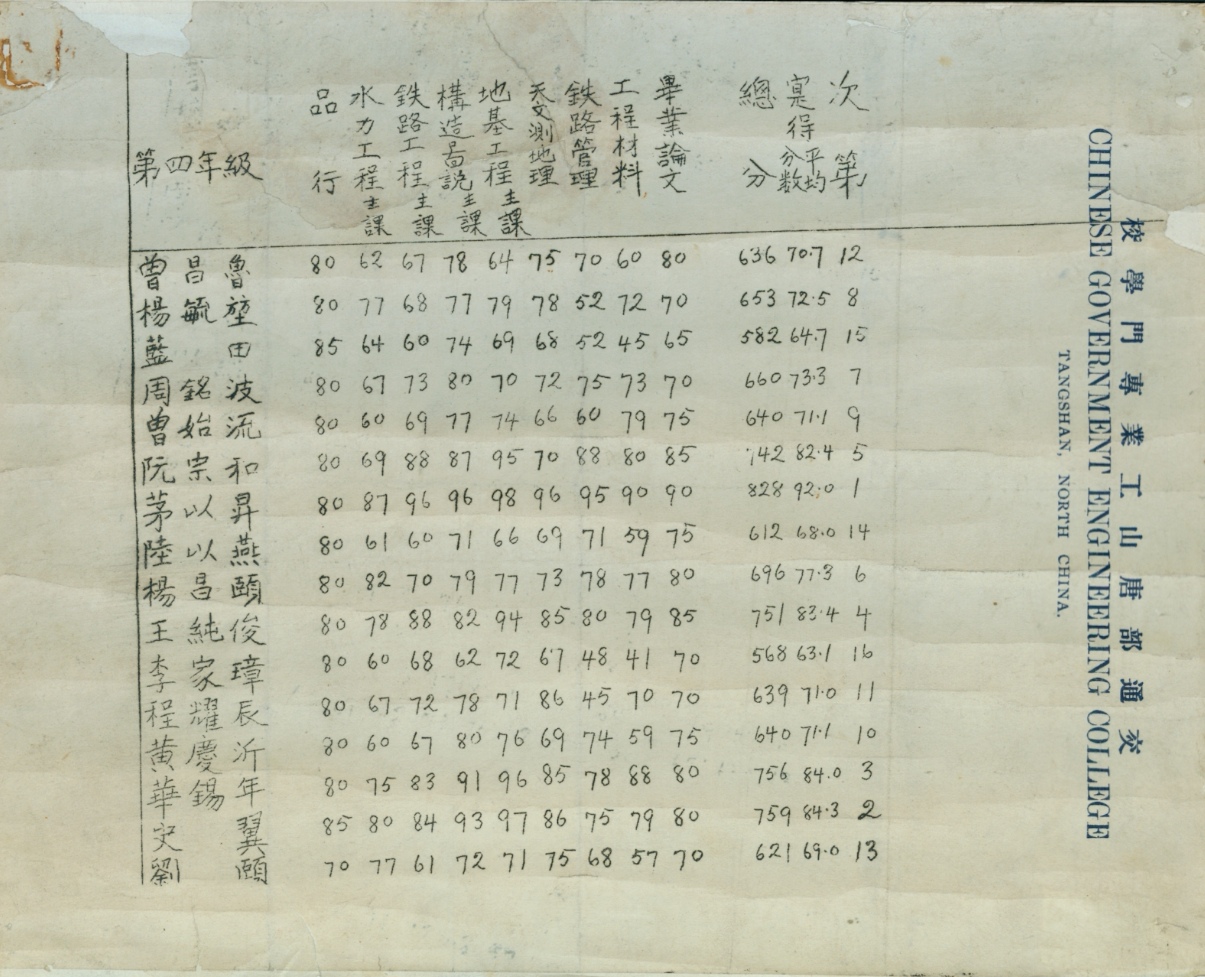 交通部唐山工業專門學校
CHINESE GOVERNMENT ENGINEERING COLLEGE
TANGSHAN, NORTH CHINA.
第四年級 品行 水力工程主課 鉄路工程主課 構造啚説主課 地基工程主課 天文測地理 鉄路管理 工程材料 畢業論文 總分 寔得分数平均 次第
曾昌魯 80 62 67 78 64 75 70 60 80 636 70.7 12
楊毓堃 80 77 68 77 79 78 52 72 70 653 72.5 8
藍田 85 64 60 74 69 68 52 45 65 582 64.7 15
周銘波 80 67 73 80 70 72 75 73 70 660 73.3 7
曾始流 80 60 69 77 74 66 60 79 75 640 71.1 9
阮宗和 80 69 88 87 95 70 88 80 85 742 82.4 5
茅以昇 80 87 96 96 98 96 95 90 90 828 92.0 1
陸以燕 80 61 60 71 66 69 71 59 75 612 68.0 14
楊昌頤 80 82 70 79 77 73 78 77 80 696 77.3 6
王純俊 80 78 88 82 94 85 80 79 85 751 83.4 4
李家璋 80 60 68 62 72 67 48 41 70 568 63.1 16
程耀辰 80 67 72 78 71 86 45 70 70 639 71.0 11
黄慶沂 80 60 67 80 76 69 74 59 75 640 71.1 10
華錫年 80 75 83 91 96 85 78 88 80 756 84.0 3
安翼 85 80 84 93 97 86 75 79 80 759 84.3 2
劉頤 70 77 61 72 71 75 68 57 70 621 69.0 13